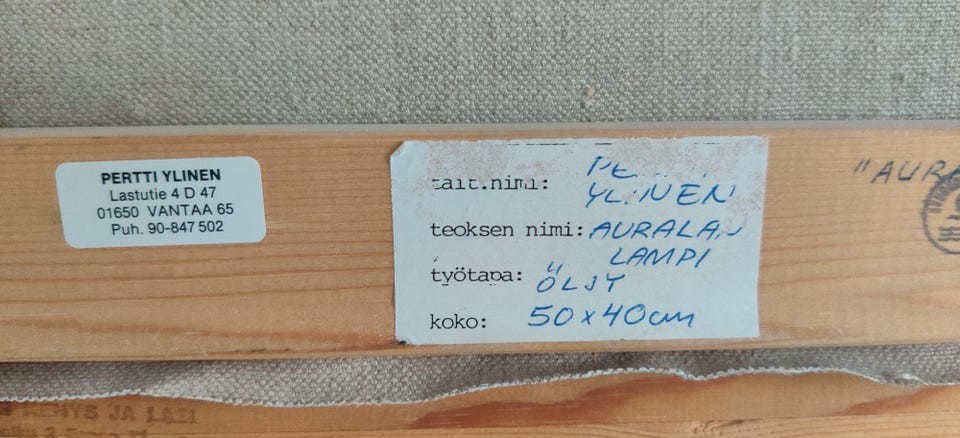 PERTTI YLINEN
Lastutie 4 D 47
01650 VANTAA 65
Puh. 90-847 502
tait.nimi:
YLINEN
teoksen nimi: AURALAN
LAMPI
työtapa: ÖLJY
koko: 50 x 40 cm
"AURA
KEHYS JA LASI